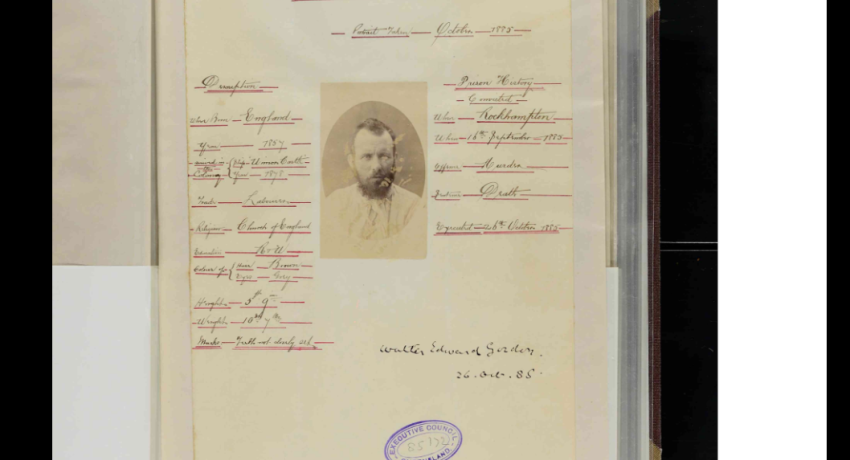 Portrait Taken October 1885
Description
Where Born England
Year 1857
arrived in Colony Ship Merion Castle
Year 1878
Trade Labourer
Religion Church of England
Education R & W
Colour of Hair Brown
Eyes Grey
Height 5ft 9in
Weight 10st 7lbs
Marks Teeth not clearly set
Prison History
Convicted
Where Rockhampton
When 16th September 1885
Offence Murder
Sentence Death
Executed 26th October 1885
Walter Edward Gordon.
26. Oct. 85.
EXECUTIVE COUNCIL